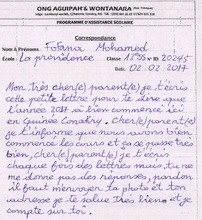 ONG AGUIPAH & WONTANARA
PROGRAMME D'ASSISTANCE SCOLAIRE
Correspondance
Nom & Prénoms Fofana Mohamed
Ecole La providence Classe: 12ème SS N° ID 20245
Date: 02-02-2017
Mon très cher(e) parent(e) je t'écris
cette petite lettre pour te dire que
l'année 2017 a bien commencé ici
en Guinée Conakry. Cher(e) parent(e)
je t'informe que nous avons bien
commencé les cours et ça se passe très
bien, cher(e) parent(e) je t'écris
chaque fois des lettres mais tu ne
me donne pas des réponses, pardon
il faut m'envoyer ta photo et ton
adresse je te salue très bien et je
compte sur toi.